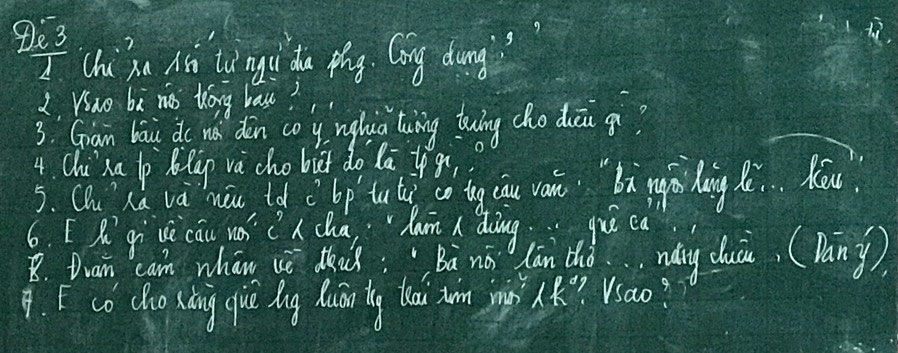 Đề 3
1. Chỉ ra 1 số từ ngữ địa phg. Công dụng?
2. Vsao bà nội trồng bầu?
3. Giàn bầu đc nói đến có ý nghĩa tượng trưng cho điều gì?
4. Chỉ ra tp blập và cho biết đó là tp gì?
5. Chỉ ra và nêu td c bp tu từ có tg câu văn: "Bà ngồi lặng lẽ... kêu".
6. E gì về câu nói c cha, "làm dừng... quê cả"..
8. Đoạn cảm nhận về: "Bà nội lần thở... nắng chiều. (Dàn ý)
7. E có cho rằng quê hg luôn tg trái tim mỗi k? Vsao?